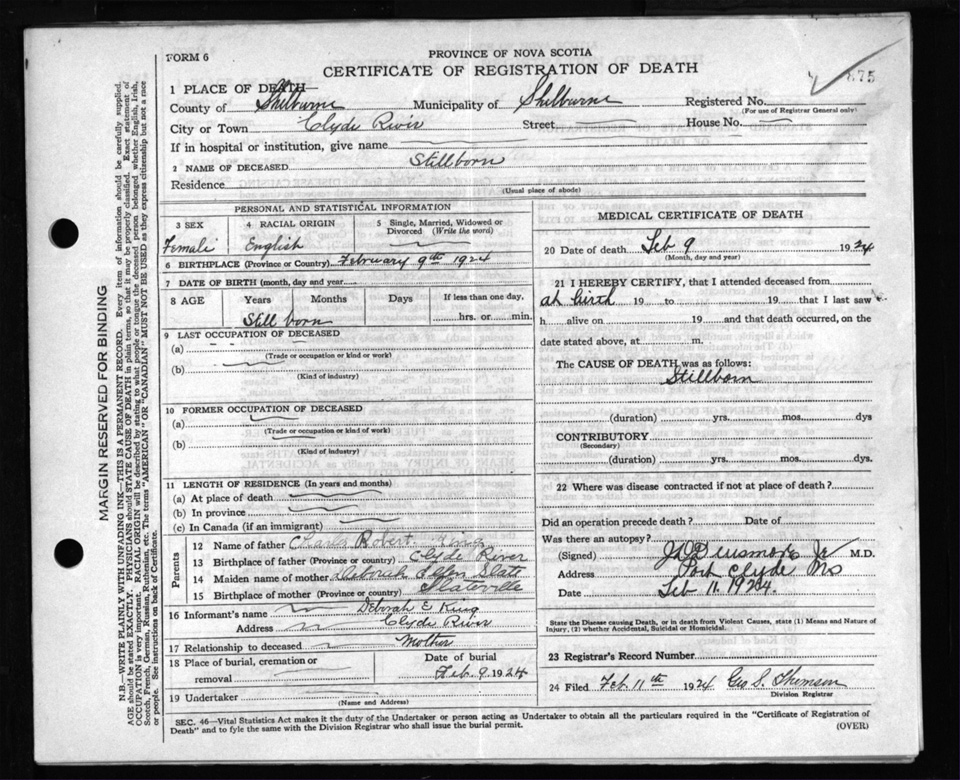 FORM 6
PROVINCE OF NOVA SCOTIA
CERTIFICATE OF REGISTRATION OF DEATH
875
1 PLACE OF DEATH—
County of Shelburne Municipality of Shelburne Registered No.
(For use of Registrar General only)
City or Town Clyde River Street House No.
If in hospital or institution, give name
2 NAME OF DECEASED Stillborn
Residence
(Usual place of abode)
PERSONAL AND STATISTICAL INFORMATION
3 SEX 4 RACIAL ORIGIN 5 Single, Married, Widowed or Divorced (Write the word)
Female English
6 BIRTHPLACE (Province or Country) February 9th 1924
7 DATE OF BIRTH (month, day and year)
8 AGE Years Months Days If less than one day,
Still born hrs. or min.
9 LAST OCCUPATION OF DECEASED
(a)
(Trade or occupation or kind of work)
(b)
(Kind of industry)
10 FORMER OCCUPATION OF DECEASED
(a)
(Trade or occupation or kind of work)
(b)
(Kind of industry)
11 LENGTH OF RESIDENCE (In years and months)
(a) At place of death
(b) In province
(c) In Canada (if an immigrant)
Parents
12 Name of father Charles Robert King
13 Birthplace of father (Province or country) Clyde River
14 Maiden name of mother Deborah
15 Birthplace of mother (Province or country) Slateville
16 Informant's name Deborah E King
Address Clyde River
17 Relationship to deceased Mother
18 Place of burial, cremation or removal
Date of burial
Feb. 9 1924
19 Undertaker
(Name and Address)
MEDICAL CERTIFICATE OF DEATH
20 Date of death Feb 9 1924
(Month, day and year)
21 I HEREBY CERTIFY, that I attended deceased from
at birth 19 to 19 that I last saw
h alive on 19 and that death occurred, on the
date stated above, at m.
The CAUSE OF DEATH was as follows:
Stillborn
(duration) yrs. mos. dys
CONTRIBUTORY
(Secondary)
(duration) yrs. mos. dys.
22 Where was disease contracted if not at place of death?
Did an operation precede death? Date of
Was there an autopsy?
(Signed) Jr M.D.
Address Port Clyde NS
Date Feb 11. 1924.
State the Disease causing Death, or in death from Violent Causes, state (1) Means and Nature of
Injury, (2) whether Accidental, Suicidal or Homicidal.
23 Registrar's Record Number
24 Filed Feb. 11th 1924 Geo S.
Division Registrar
SEC. 46—Vital Statistics Act makes it the duty of the Undertaker or person acting as Undertaker to obtain all the particulars required in the "Certificate of Registration of
Death" and to fyle the same with the Division Registrar who shall issue the burial permit. (OVER)
MARGIN RESERVED FOR BINDING
N.B.—WRITE PLAINLY WITH UNFADING INK—THIS IS A PERMANENT RECORD. Every item of information should be carefully supplied.
AGE should be stated EXACTLY. PHYSICIANS should STATE CAUSE OF DEATH in plain terms, so that it may be properly classified. Exact statement of
OCCUPATION is very important. RACIAL ORIGIN will be described by stating to what people or tongue the deceased person belonged whether English, Irish,
Scotch, French, German, Russian, Ruthenian, etc. The terms "AMERICAN" OR "CANADIAN" MUST NOT BE USED as they express citizenship but not a race
or people. See instructions on back of Certificate.